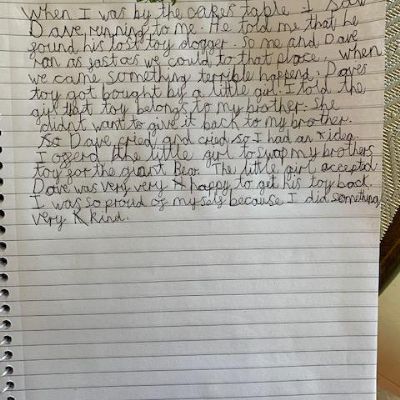 When I was by the cakes table I saw
Dave running to me. He told me that he
found his lost toy dogger. So me and Dave
ran as fast as we could to that place. When
we came something terrible happend. Daves
toy got bought by a little girl. I told the
girl that toy belongs to my brother. She
didnt want to give it back to my brother.
So Dave cried and cried so I had an idea
I offerd the little girl to swap my brothers
toy for the giant Bear. The little girl accepted
Dave was very very happy to get his toy back.
I was so proud of my self because I did something
very kind.